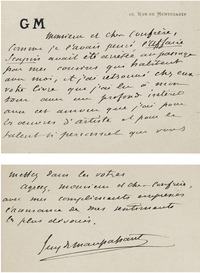 GM
10, RUE DE MONTCHANIN
Monsieur et cher Confrère,
Comme je l'avais pensé l'affaire
avait été arrêtée au passage
par mes cousins qui habitent
avec moi, et j'ai retrouvé chez eux
votre livre que j'ai lu à mon
tour avec un profond intérêt
avec cet amour que j'ai pour
les œuvres d'artiste et pour le
talent si personnel que vous
mettez dans les vôtres
Agréez, monsieur et cher confrère,
avec mes compliments empressés
l'assurance de mes sentiments
les plus dévoués.
Guy de Maupassant